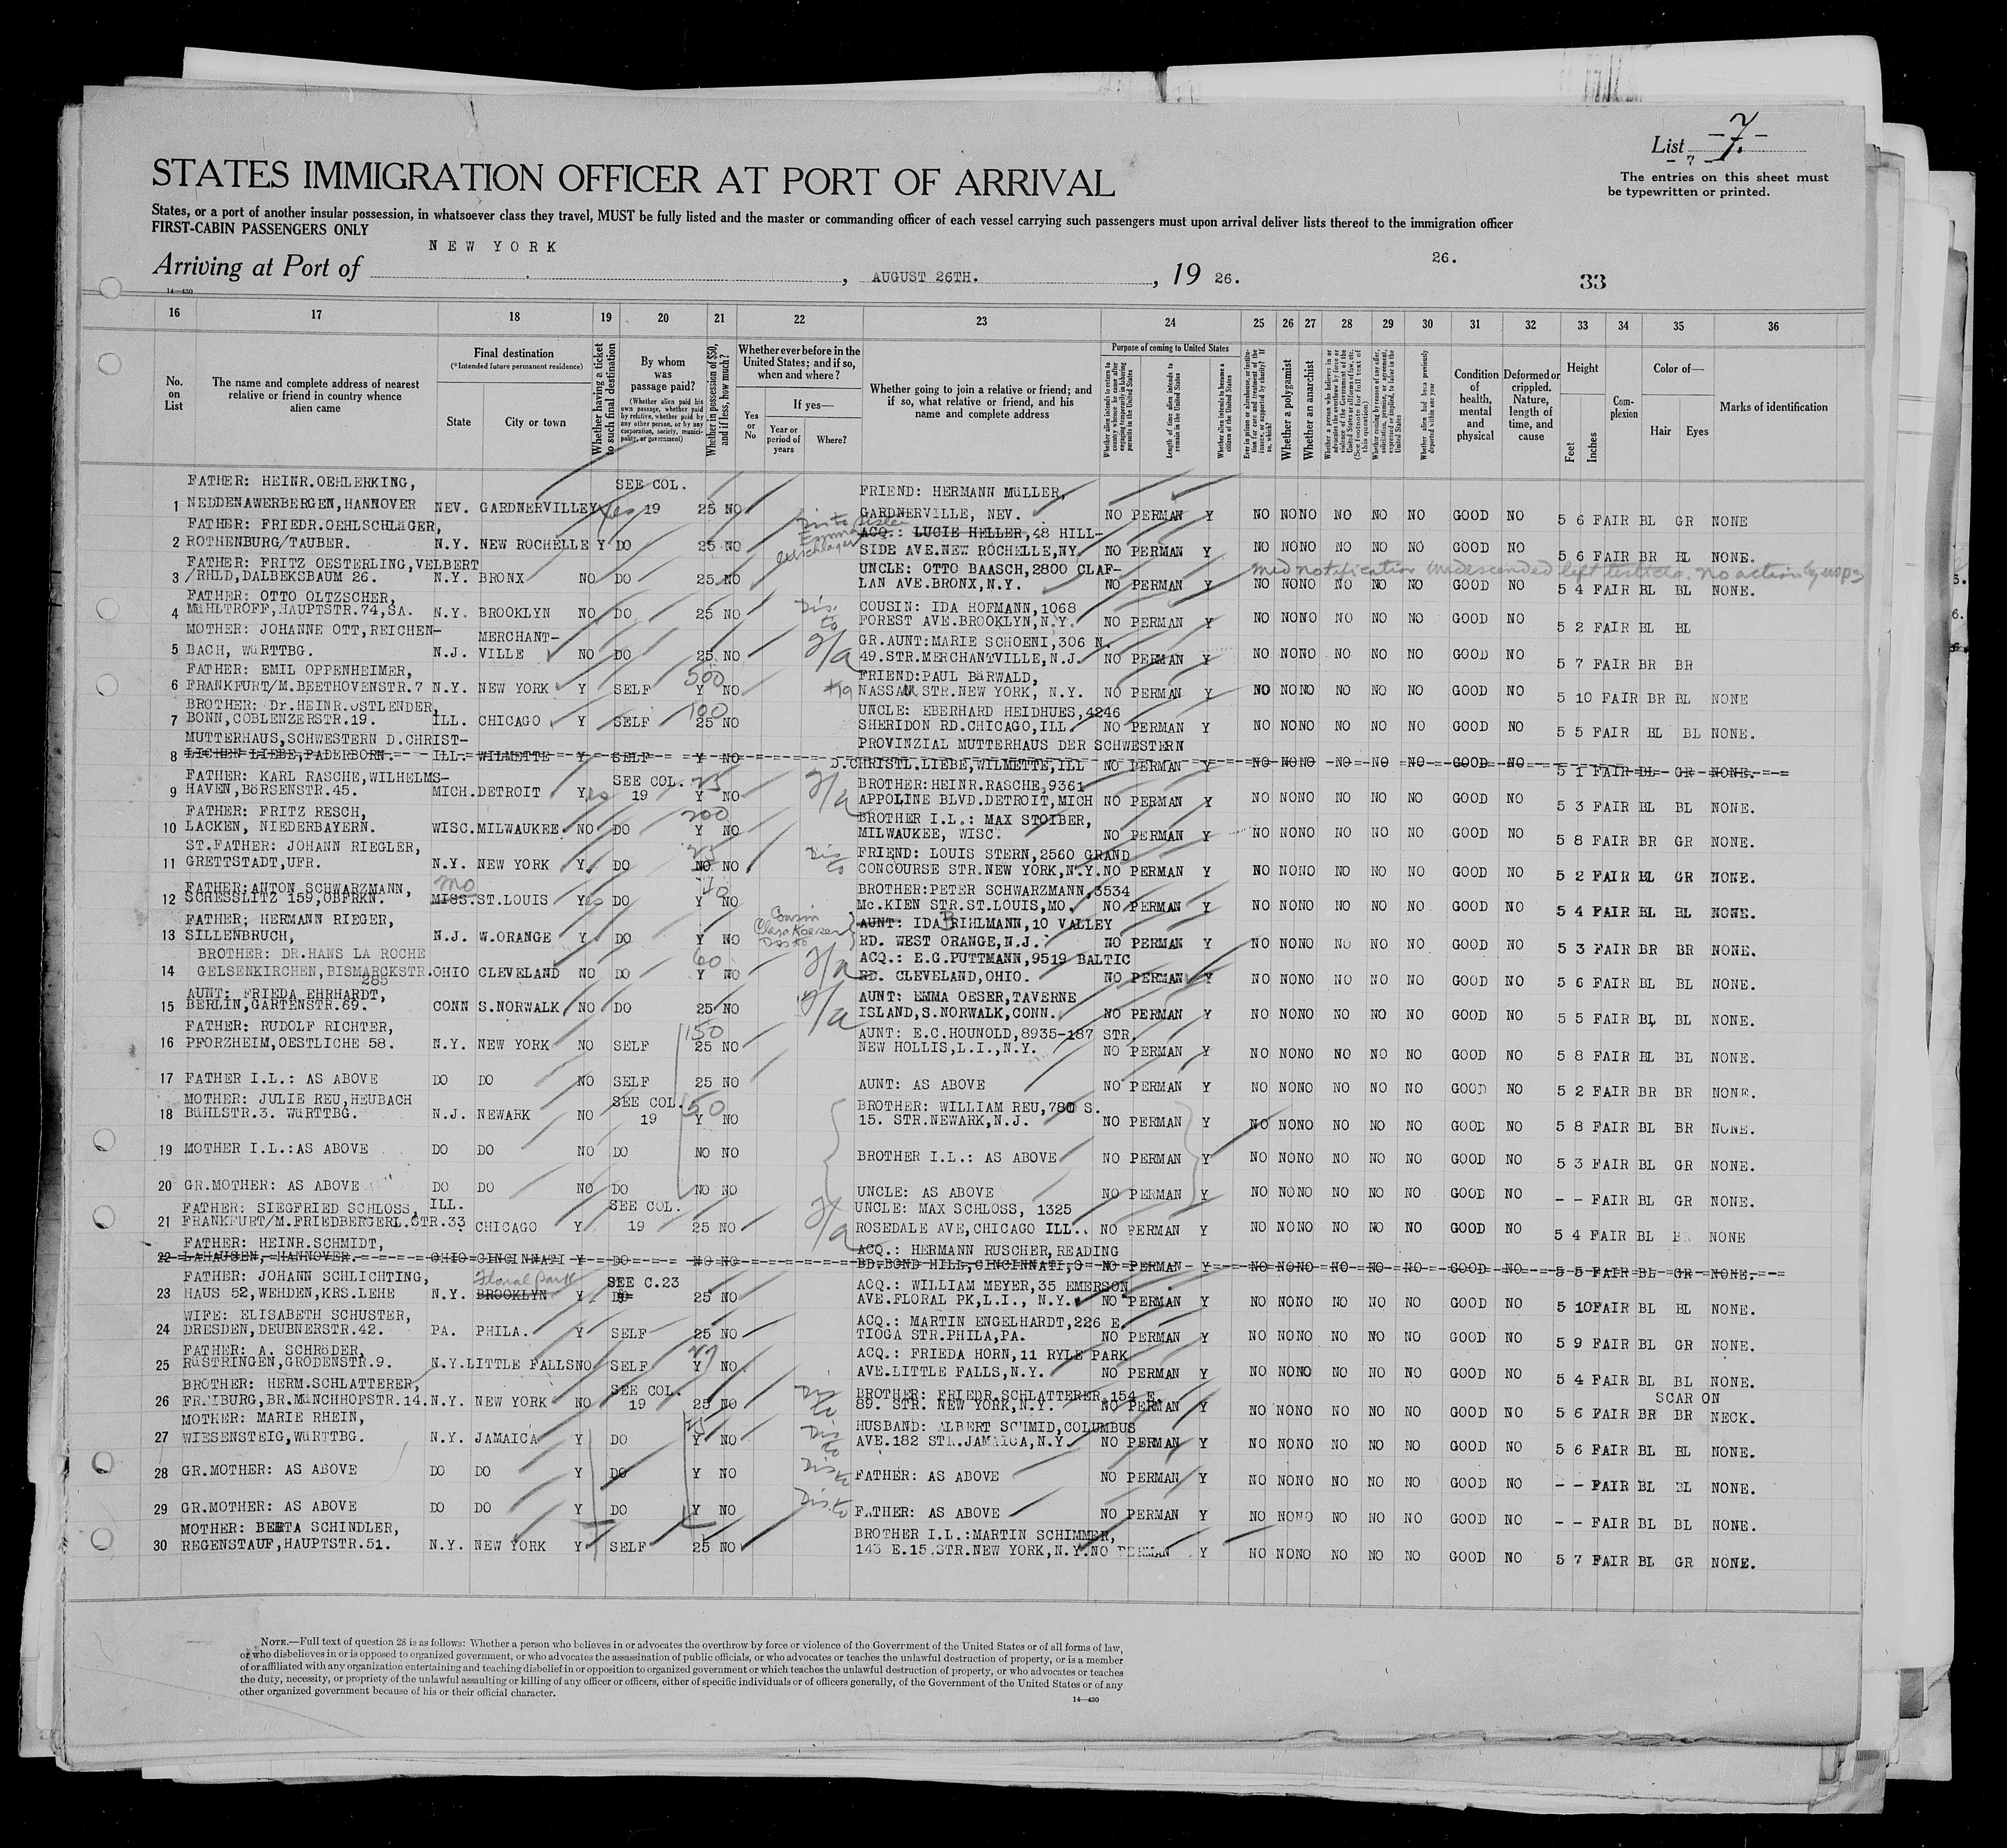 List -7-
- 7 -
The entries on this sheet must
be typewritten or printed.
STATES IMMIGRATION OFFICER AT PORT OF ARRIVAL
States, or a port of another insular possession, in whatsoever class they travel, MUST be fully listed and the master or commanding officer of each vessel carrying such passengers must upon arrival deliver lists thereof to the immigration officer
FIRST-CABIN PASSENGERS ONLY
NEW YORK
26.
Arriving at Port of , AUGUST 26TH. , 19 26.
33
14—430
16 17 18 19 20 21 22 23 24 25 26 27 28 29 30 31 32 33 34 35 36
No. on List
The name and complete address of nearest relative or friend in country whence alien came
Final destination
(*Intended future permanent residence)
State
City or town
Whether having a ticket to such final destination
By whom was passage paid?
(Whether alien paid his own passage, whether paid by relative, whether paid by any other person, or by any corporation, society, municipality, or government)
Whether in possession of $50, and if less, how much?
Whether ever before in the United States; and if so, when and where?
Yes or No
If yes—
Year or period of years
Where?
Whether going to join a relative or friend; and if so, what relative or friend, and his name and complete address
Purpose of coming to United States
Length of time alien intends to remain in the United States
Whether a polygamist
Whether an anarchist
Condition of health, mental and physical
Deformed or crippled. Nature, length of time, and cause
Height
Feet
Inches
Complexion
Color of—
Hair
Eyes
Marks of identification
FATHER: HEINR.OEHLERKING, SEE COL. FRIEND: HERMANN MüLLER,
1 NEDDENAWERBERGEN,HANNOVER NEV. GARDNERVILLE Yes 19 25 NO GARDNERVILLE, NEV. NO PERMAN Y NO NO NO NO NO NO GOOD NO 5 6 FAIR BL GR NONE
FATHER: FRIEDR.OEHLSCHLäGER, ACQ.: LUCIE HELLER,48 HILL-
2 ROTHENBURG/TAUBER. N.Y. NEW ROCHELLE Y DO 25 NO SIDE AVE.NEW ROCHELLE,NY. NO PERMAN Y NO NO NO NO NO NO GOOD NO 5 6 FAIR BR BL NONE.
FATHER: FRITZ OESTERLING,VELBERT UNCLE: OTTO BAASCH,2800 CLAF- med notification undescended left testicle. no action by usphs
3 /RHLD,DALBEKSBAUM 26. N.Y. BRONX NO DO 25 NO LAN AVE.BRONX,N.Y. NO PERMAN Y NO NO NO NO NO NO GOOD NO 5 4 FAIR BL BL NONE.
FATHER: OTTO OLTZSCHER, Dis. to COUSIN: IDA HOFMANN,1068
4 MüHLTROFF,HAUPTSTR.74,SA. N.Y. BROOKLYN NO DO 25 NO FOREST AVE.BROOKLYN,N.Y. NO PERMAN Y NO NO NO NO NO NO GOOD NO 5 2 FAIR BL BL
MOTHER: JOHANNE OTT,REICHEN- MERCHANT- GR.AUNT:MARIE SCHOENI,306 N.
5 BACH, WüRTTBG. N.J. VILLE NO DO 25 NO 49.STR.MERCHANTVILLE,N.J. NO PERMAN Y NO NO NO NO NO NO GOOD NO 5 7 FAIR BR BR
FATHER: EMIL OPPENHEIMER, 500 FRIEND:PAUL BäRWALD,
6 FRANKFURT/M.BEETHOVENSTR.7 N.Y. NEW YORK Y SELF Y NO NASSAU STR.NEW YORK, N.Y. NO PERMAN Y NO NO NO NO NO NO GOOD NO 5 10 FAIR BR BL NONE
BROTHER: Dr.HEINR.OSTLENDER, 100 UNCLE: EBERHARD HEIDHUES,4246
7 BONN,COBLENZERSTR.19. ILL. CHICAGO Y SELF 25 NO SHERIDON RD.CHICAGO,ILL. NO PERMAN Y NO NO NO NO NO NO GOOD NO 5 5 FAIR BL BL NONE.
MUTTERHAUS,SCHWESTERN D.CHRIST- PROVINZIAL MUTTERHAUS DER SCHWESTERN
8 LICHEN LIEBE,PADERBORN. ILL. WILMETTE Y SELF Y NO D.CHRISTL.LIEBE,WILMETTE,ILL NO PERMAN Y NO NO NO NO NO NO GOOD NO 5 1 FAIR BL GR NONE.
FATHER: KARL RASCHE,WILHELMS- SEE COL. 25 BROTHER:HEINR.RASCHE,9361
9 HAVEN,BöRSENSTR.45. MICH.DETROIT Yes 19 Y NO APPOLINE BLVD.DETROIT,MICH NO PERMAN Y NO NO NO NO NO NO GOOD NO 5 3 FAIR BL BL NONE.
FATHER: FRITZ RESCH, 200 BROTHER I.L.: MAX STOIBER,
10 LACKEN, NIEDERBAYERN. WISC.MILWAUKEE. NO DO Y NO MILWAUKEE, WISC. NO PERMAN Y NO NO NO NO NO NO GOOD NO 5 8 FAIR BR GR NONE.
ST.FATHER: JOHANN RIEGLER, 25 Dis to FRIEND: LOUIS STERN,2560 GRAND
11 GRETTSTADT,UFR. N.Y. NEW YORK Y DO NO NO CONCOURSE STR.NEW YORK,N.Y.NO PERMAN Y NO NO NO NO NO NO GOOD NO 5 2 FAIR BL GR NONE.
FATHER:ANTON SCHWARZMANN, Mo 40 BROTHER:PETER SCHWARZMANN,3534
12 SCHESSLITZ 159,OBFRKN. MISS.ST.LOUIS Yes DO Y NO Mc.KIEN STR.ST.LOUIS,MO. NO PERMAN Y NO NO NO NO NO NO GOOD NO 5 4 FAIR BL BL NONE.
FATHER; HERMANN RIEGER, Cousin AUNT: IDA BRIHLMANN,10 VALLEY
13 SILLENBRUCH, N.J. W.ORANGE Y DO Y NO Dis to RD. WEST ORANGE,N.J. NO PERMAN Y NO NO NO NO NO NO GOOD NO 5 3 FAIR BR BR NONE.
BROTHER: DR.HANS LA ROCHE 60 ACQ.: E.G.PUTTMANN,9519 BALTIC
14 GELSENKIRCHEN,BISMARCKSTR. OHIO CLEVELAND NO DO Y NO RD. CLEVELAND,OHIO. NO PERMAN Y NO NO NO NO NO NO GOOD NO 5 6 FAIR BL BL NONE.
285
AUNT: FRIEDA EHRHARDT, AUNT: EMMA OESER,TAVERNE
15 BERLIN,GARTENSTR.69. CONN S.NORWALK NO DO 25 NO ISLAND,S.NORWALK,CONN. NO PERMAN Y NO NO NO NO NO NO GOOD NO 5 5 FAIR BL BL NONE.
FATHER: RUDOLF RICHTER, 150 AUNT: E.C.HOUNOLD,8935-187 STR.
16 PFORZHEIM,OESTLICHE 58. N.Y. NEW YORK NO SELF 25 NO NEW HOLLIS,L.I.,N.Y. NO PERMAN Y NO NO NO NO NO NO GOOD NO 5 8 FAIR BL BL NONE.
17 FATHER I.L.: AS ABOVE DO DO NO SELF 25 NO AUNT: AS ABOVE NO PERMAN Y NO NO NO NO NO NO GOOD NO 5 2 FAIR BR BR NONE.
MOTHER: JULIE REU,HEUBACH SEE COL. 50 BROTHER: WILLIAM REU,780 S.
18 BüHLSTR.3. WüRTTBG. N.J. NEWARK NO 19 Y NO 15. STR.NEWARK,N.J. NO PERMAN Y NO NO NO NO NO NO GOOD NO 5 8 FAIR BL BR NONE.
19 MOTHER I.L.:AS ABOVE DO DO NO DO NO NO BROTHER I.L.: AS ABOVE NO PERMAN Y NO NO NO NO NO NO GOOD NO 5 3 FAIR BL GR NONE.
20 GR.MOTHER: AS ABOVE DO DO NO DO NO NO UNCLE: AS ABOVE NO PERMAN Y NO NO NO NO NO NO GOOD NO - - FAIR BL GR NONE.
FATHER: SIEGFRIED SCHLOSS, ILL. SEE COL. UNCLE: MAX SCHLOSS, 1325
21 FRANKFURT/M.FRIEDBERGERL.STR.33 CHICAGO Y 19 25 NO ROSEDALE AVE,CHICAGO ILL. NO PERMAN Y NO NO NO NO NO NO GOOD NO 5 4 FAIR BL BR NONE
FATHER: HEINR.SCHMIDT, ACQ.: HERMANN RUSCHER,READING
22 LAHAUSEN, HANNOVER. OHIO CINCINNATI Y DO NO NO BD.BOND HILL,CINCINNATI,O NO PERMAN Y NO NO NO NO NO NO GOOD NO 5 5 FAIR BL GR NONE.
FATHER: JOHANN SCHLICHTING, Floral Park SEE C.23 ACQ.: WILLIAM MEYER,35 EMERSON
23 HAUS 52,WEHDEN,KRS.LEHE N.Y. BROOKLYN Y DO 25 NO AVE.FLORAL PK,L.I., N.Y. NO PERMAN Y NO NO NO NO NO NO GOOD NO 5 10 FAIR BL BL NONE.
WIFE: ELISABETH SCHUSTER, ACQ.: MARTIN ENGELHARDT,226 E.
24 DRESDEN,DEUBNERSTR.42. PA. PHILA. Y SELF 25 NO TIOGA STR.PHILA,PA. NO PERMAN Y NO NO NO NO NO NO GOOD NO 5 9 FAIR BL GR NONE.
FATHER: A. SCHRöDER, ACQ.: FRIEDA HORN,11 RYLE PARK
25 RüSTRINGEN,GRODENSTR.9. N.Y.LITTLE FALLS NO SELF Y NO AVE.LITTLE FALLS,N.Y. NO PERMAN Y NO NO NO NO NO NO GOOD NO 5 4 FAIR BL BL NONE.
BROTHER: HERM.SCHLATTERER, SEE COL. Dis to BROTHER: FRIEDR.SCHLATTERER,154 E. SCAR ON
26 FREIBURG,BR.MüNCHHOFSTR.14.N.Y. NEW YORK NO 19 25 NO 89. STR. NEW YORK,N.Y. NO PERMAN Y NO NO NO NO NO NO GOOD NO 5 6 FAIR BR BR NECK.
MOTHER: MARIE RHEIN, 25 Dis to HUSBAND: ALBERT SCHMID,COLUMBUS
27 WIESENSTEIG,WüRTTBG. N.Y. JAMAICA Y DO Y NO AVE.182 STR.JAMAICA,N.Y. NO PERMAN Y NO NO NO NO NO NO GOOD NO 5 6 FAIR BL BL NONE.
28 GR.MOTHER: AS ABOVE DO DO Y DO Y NO Dis to FATHER: AS ABOVE NO PERMAN Y NO NO NO NO NO NO GOOD NO - - FAIR BL BL NONE.
29 GR.MOTHER: AS ABOVE DO DO Y DO Y NO Dis. to FATHER: AS ABOVE NO PERMAN Y NO NO NO NO NO NO GOOD NO - - FAIR BL BL NONE.
MOTHER: BERTA SCHINDLER, BROTHER I.L.:MARTIN SCHIMMER,
30 REGENSTAUF,HAUPTSTR.51. N.Y. NEW YORK Y SELF 25 NO 143 E.15.STR.NEW YORK,N.Y.NO PERMAN Y NO NO NO NO NO NO GOOD NO 5 7 FAIR BL GR NONE.
NOTE.—Full text of question 28 is as follows: Whether a person who believes in or advocates the overthrow by force or violence of the Government of the United States or of all forms of law,
or who disbelieves in or is opposed to organized government, or who advocates the assassination of public officials, or who advocates or teaches the unlawful destruction of property, or is a member
of or affiliated with any organization entertaining and teaching disbelief in or opposition to organized government or which teaches the unlawful destruction of property, or who advocates or teaches
the duty, necessity, or propriety of the unlawful assaulting or killing of any officer or officers, either of specific individuals or of officers generally, of the Government of the United States or of any
other organized government because of his or their official character.
14—430